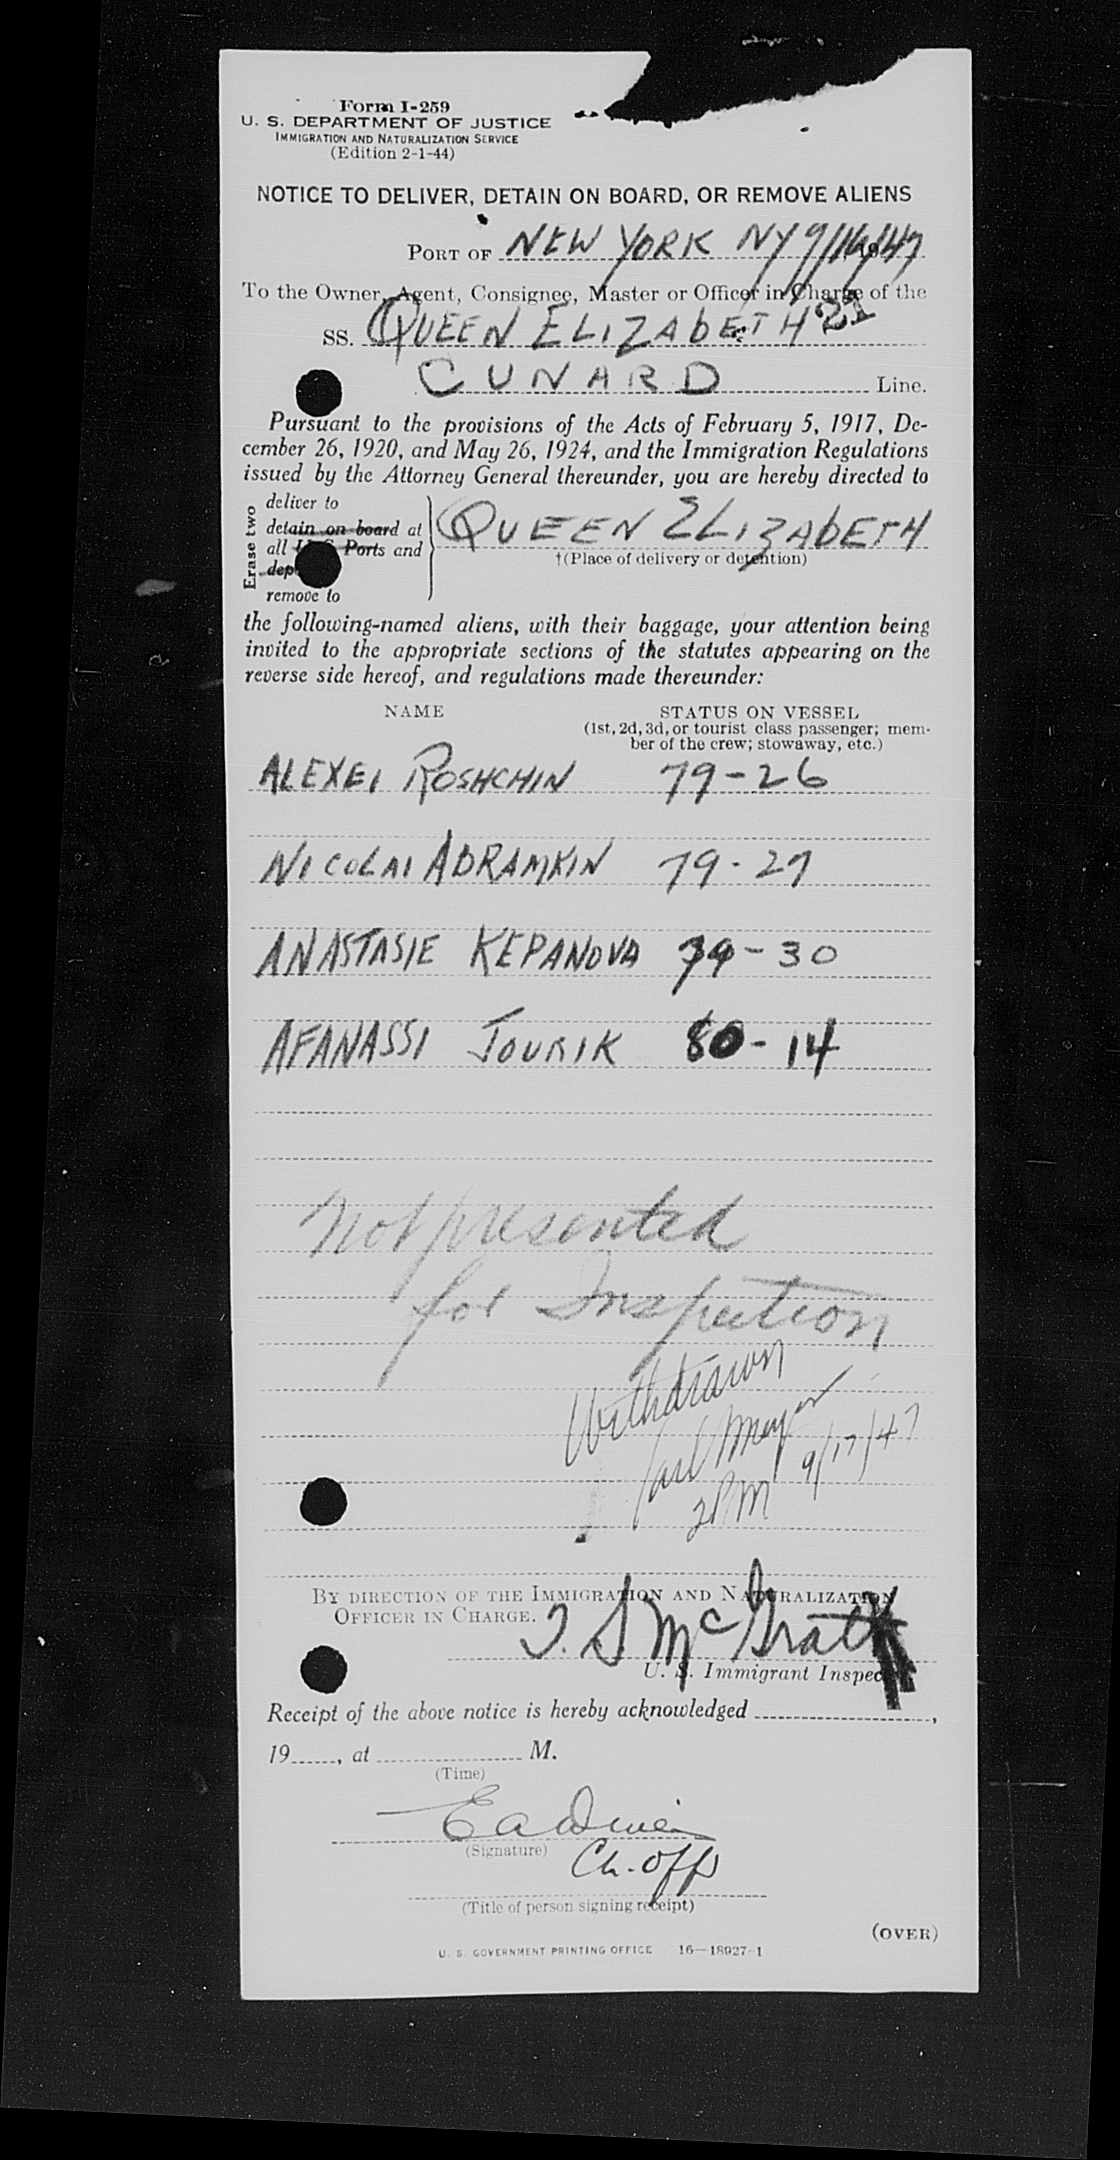 Form I-259
U. S. DEPARTMENT OF JUSTICE
IMMIGRATION AND NATURALIZATION SERVICE
(Edition 2-1-44)
NOTICE TO DELIVER, DETAIN ON BOARD, OR REMOVE ALIENS
PORT OF NEW YORK NY 9/16/47
To the Owner, Agent, Consignee, Master or Officer in Charge of the
SS. QUEEN ELIZABETH 21
CUNARD Line.
Pursuant to the provisions of the Acts of February 5, 1917, De-
cember 26, 1920, and May 26, 1924, and the Immigration Regulations
issued by the Attorney General thereunder, you are hereby directed to
Erase two
deliver to
detain on board at
all U S Ports and
dep
remove to
QUEEN ELIZABETH
†(Place of delivery or detention)
the following-named aliens, with their baggage, your attention being
invited to the appropriate sections of the statutes appearing on the
reverse side hereof, and regulations made thereunder:
NAME STATUS ON VESSEL
(1st, 2d, 3d, or tourist class passenger; mem-
ber of the crew; stowaway, etc.)
ALEXEI ROSHCHIN 79-26
NICOLAI ABRAMKIN 79-27
ANASTASIE KEPANOVA 79-30
AFANASSI JOURIK 80-14
Not presented
for Inspection
Withdrawn
Meyer 9/17/47
2PM
BY DIRECTION OF THE IMMIGRATION AND NATURALIZATION
OFFICER IN CHARGE.
McGrath
U. S. Immigrant Inspec
Receipt of the above notice is hereby acknowledged ,
19 , at M.
(Time)
(Signature)
Ch. off
(Title of person signing receipt)
(OVER)
U. S. GOVERNMENT PRINTING OFFICE 16—18927-1